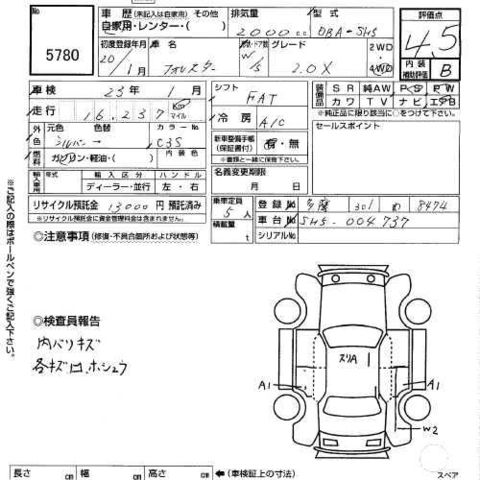 5780
車歴 (未記入は自家用) その他
自家用・レンター・( )
排気量
2000 cc
型式
DBA-SH5
評価点
4.5
内装補助評価 B
初度登録年月
20/1月
車名
フォレスター
ドア数形
W/5
グレード
2.0X
2WD・4WD
車検 23年 1月
走行 16,237 km マイル
シフト FAT
冷房 A/C
装備品
SR 純AW PS PW
カワ TV ナビ エアB
*純正品に限り該当に○をつけて下さい。
外色 元色 色替 カラーNo
シルバー→ C3S
燃料 ガソリン・軽油・( )
新車整備手帳(保証書付) 有・無
*書類と一緒に保管。
セールスポイント
輸入車用 輸入区分 ハンドル
ディーラー・並行 左・右
名義変更期限
月 日
リサイクル預託金 13,000円 預託済み
*リサイクル預託金に資金管理料金は含まれません。
乗車定員 5人
積載量 t
登録No 多摩 301 め 8474
車台No SH5-004737
シリアルNo
◎注意事項 (修復・不具合箇所および状態等)
※ご記入の際はボールペンで強くご記入下さい。
◎検査員報告
内バリキズ
各キズ凹、ホシュラ
スリA
A1
A1
W2
長さ cm 幅 cm 高さ cm ←(車検証上の寸法)
スペア